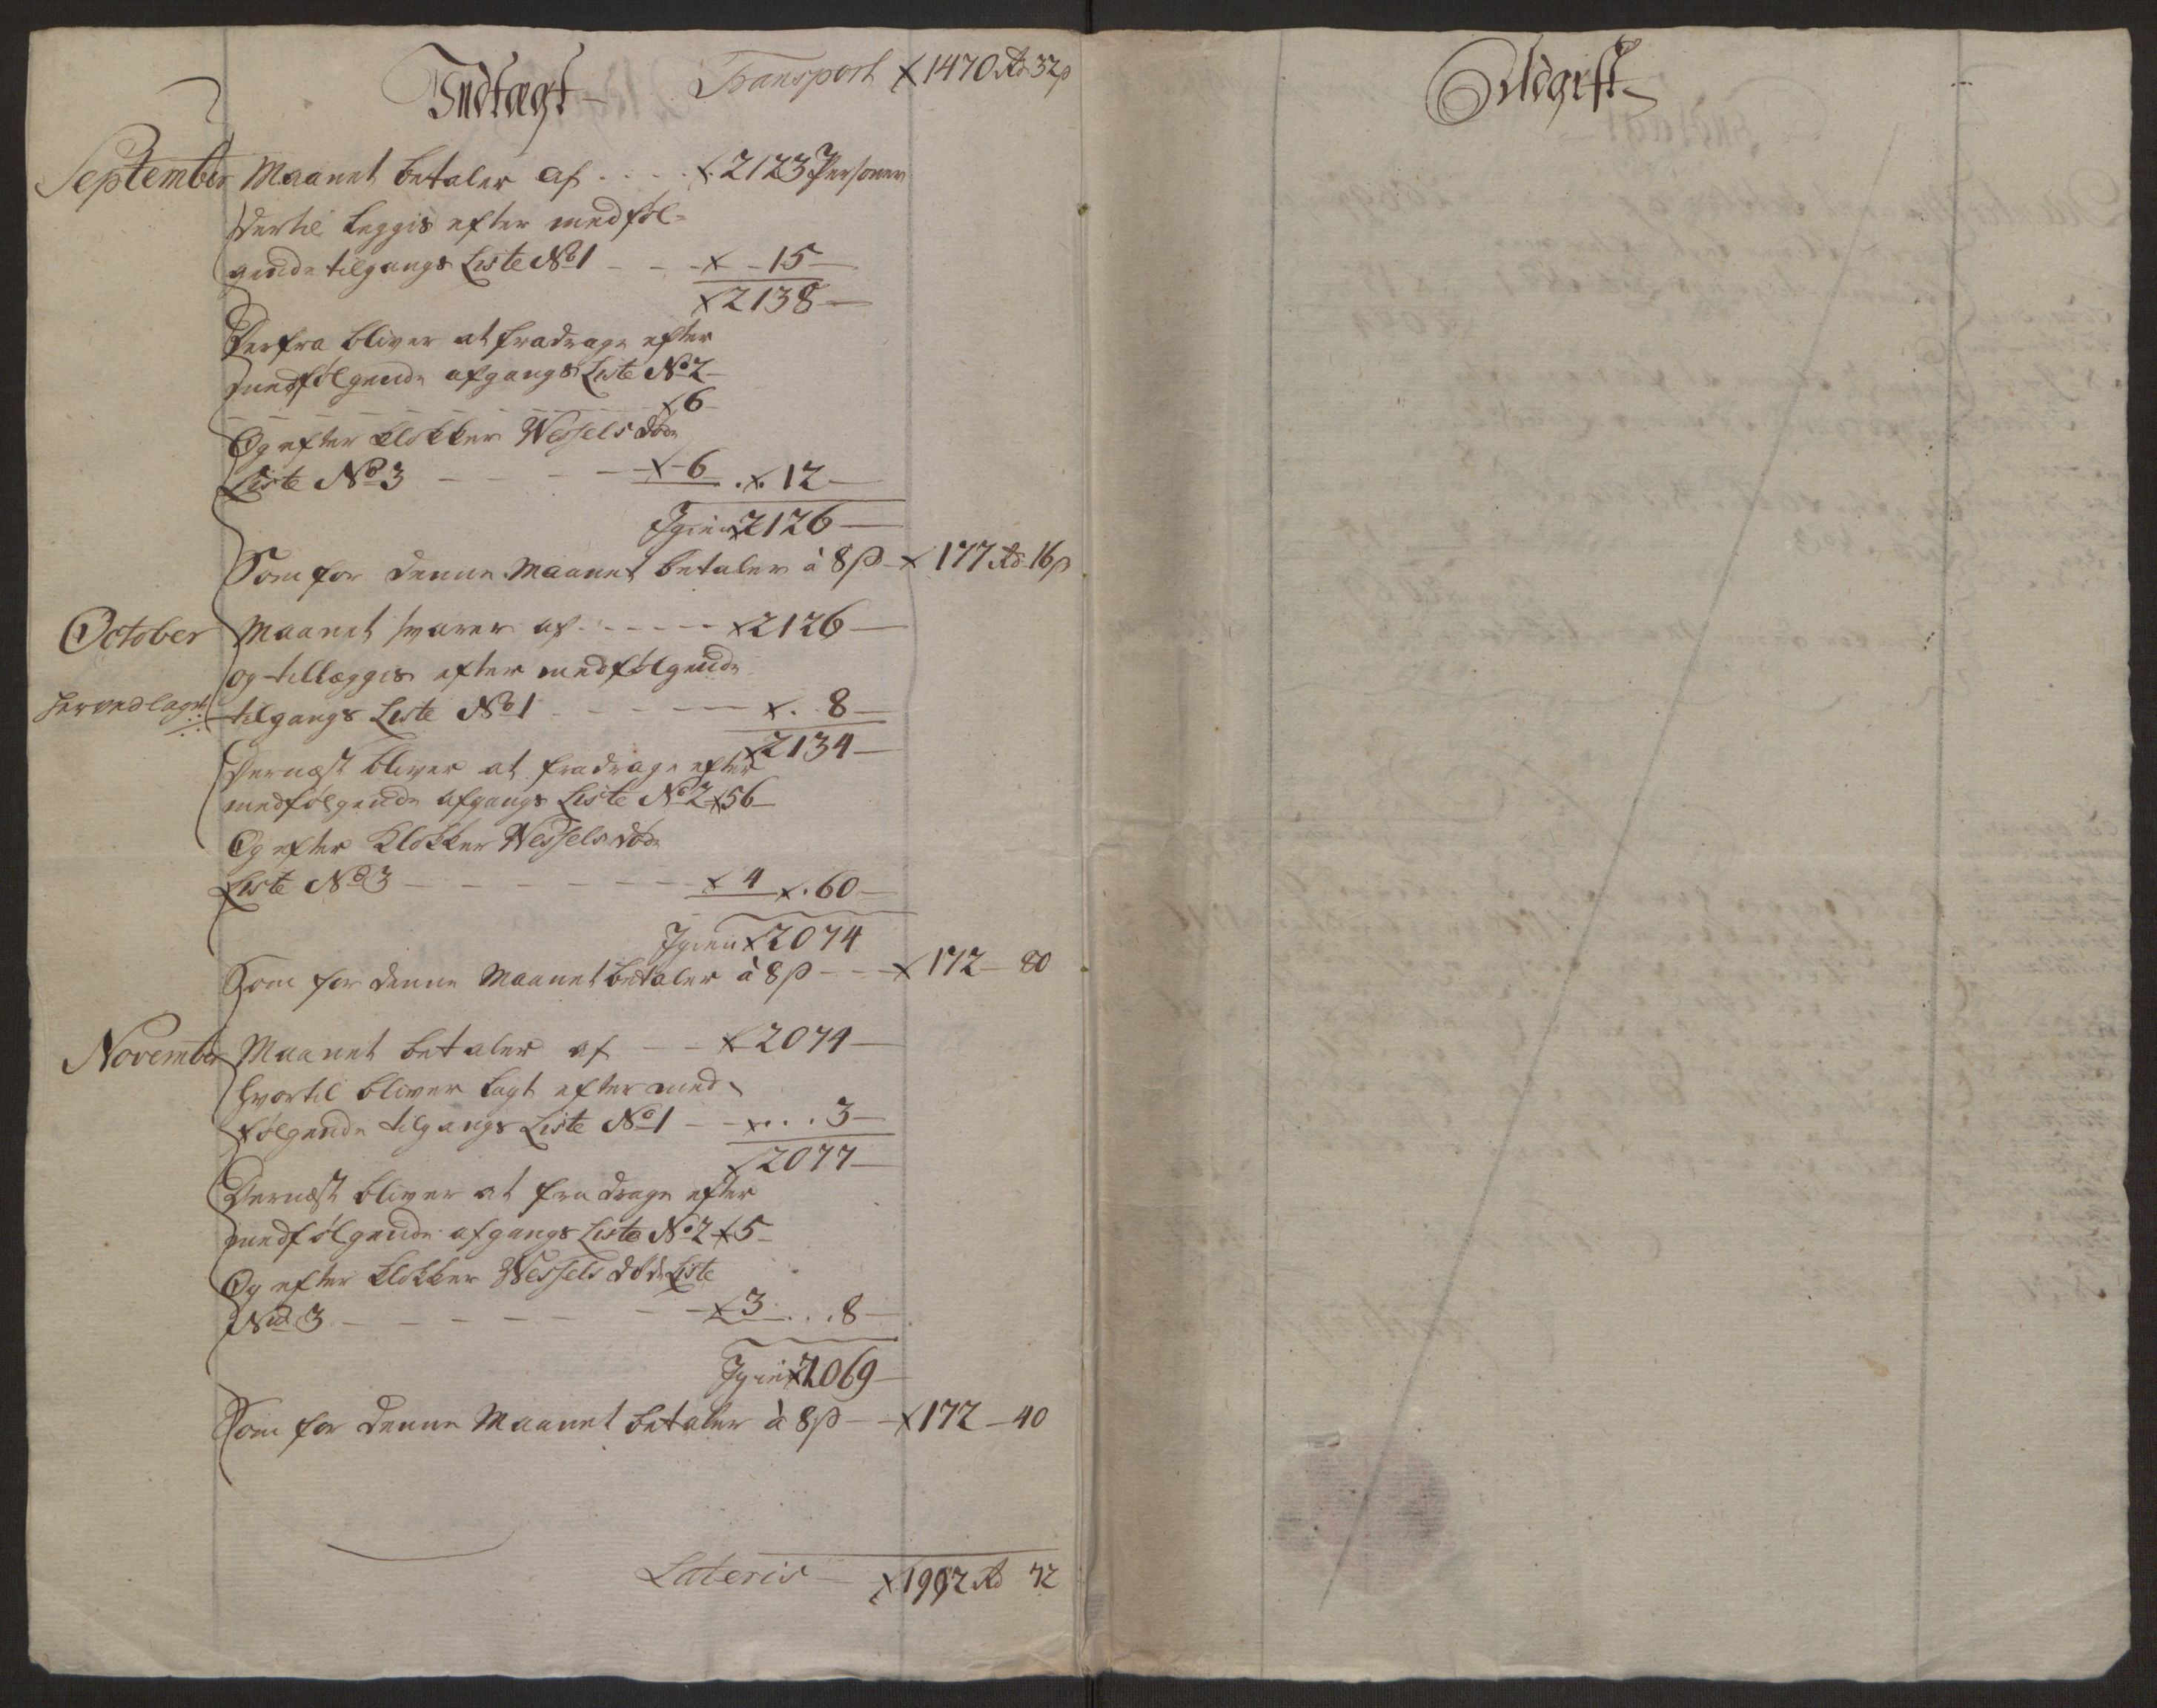 Indtægt – Transport x 1470 Rd 32 ß
September Maanet betaler af . . . . x 2123 Personer
Dertil leggis efter medføl=
gende tilgangs Liste No 1 – – x – 15 –
x 2138 –
Derfra bliver at fradrage efter
medfølgende afgangs Liste No 2 –
x 6 –
Og efter Klokker Wessels døde
Liste No 3 – – – – x – 6 . x. 12 –
Igien x 2126 –
Som for denne Maanet betaler à 8 ß – x 177 Rd 16 ß
October Maanet svarer af – – – – – x 2126 –
og tillægges efter medfølgende
hervedlagt tilgangs Liste No 1 – – – – x . 8 –
x 2134 –
Dernæst bliver at fradrage efter
medfølgende afgangs Liste No 2 x 56 –
Og efter Klokker Wessels døde
Liste No 3 – – – – – – – x 4 x . 60 –
Igien x 2074
Som for denne Maanet betaler à 8 ß – – – x 172 – 80
November Maanet betaler af – – x 2074 –
hvortil bliver lagt efter med
følgende tilgangs Liste No 1 – – x . . . 3 –
x 2077 –
Dernæst bliver at fradrage efter
medfølgende afgangs Liste No 2 x 5 –
Og efter Klokker Wessels døde Liste
No 3 – – – – – – – x 3 . . . 8 –
Igien x 2069 –
Som for denne Maanet betaler à 8 ß – – x 172 – 40
Lateris – x 1992 Rd 72
Udgift –